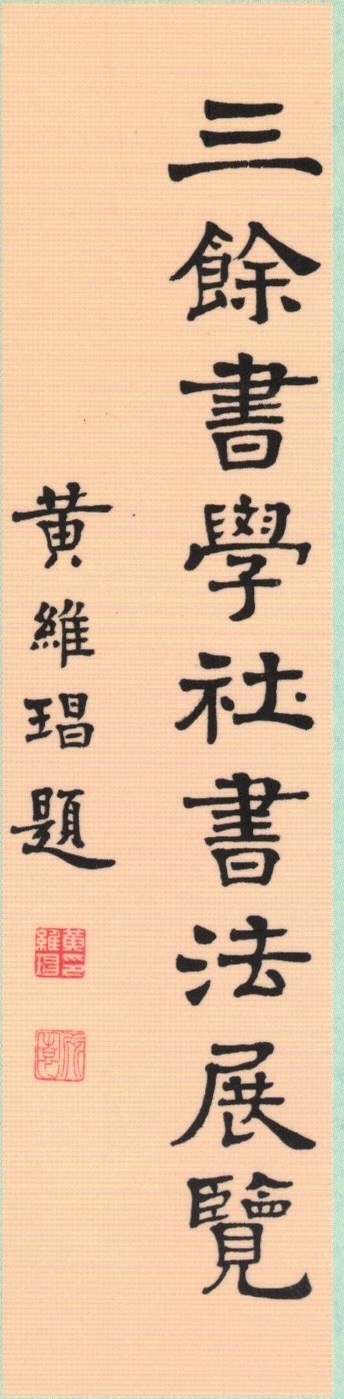 三餘書學社書法展覽
黃維琩題
黃維琩印